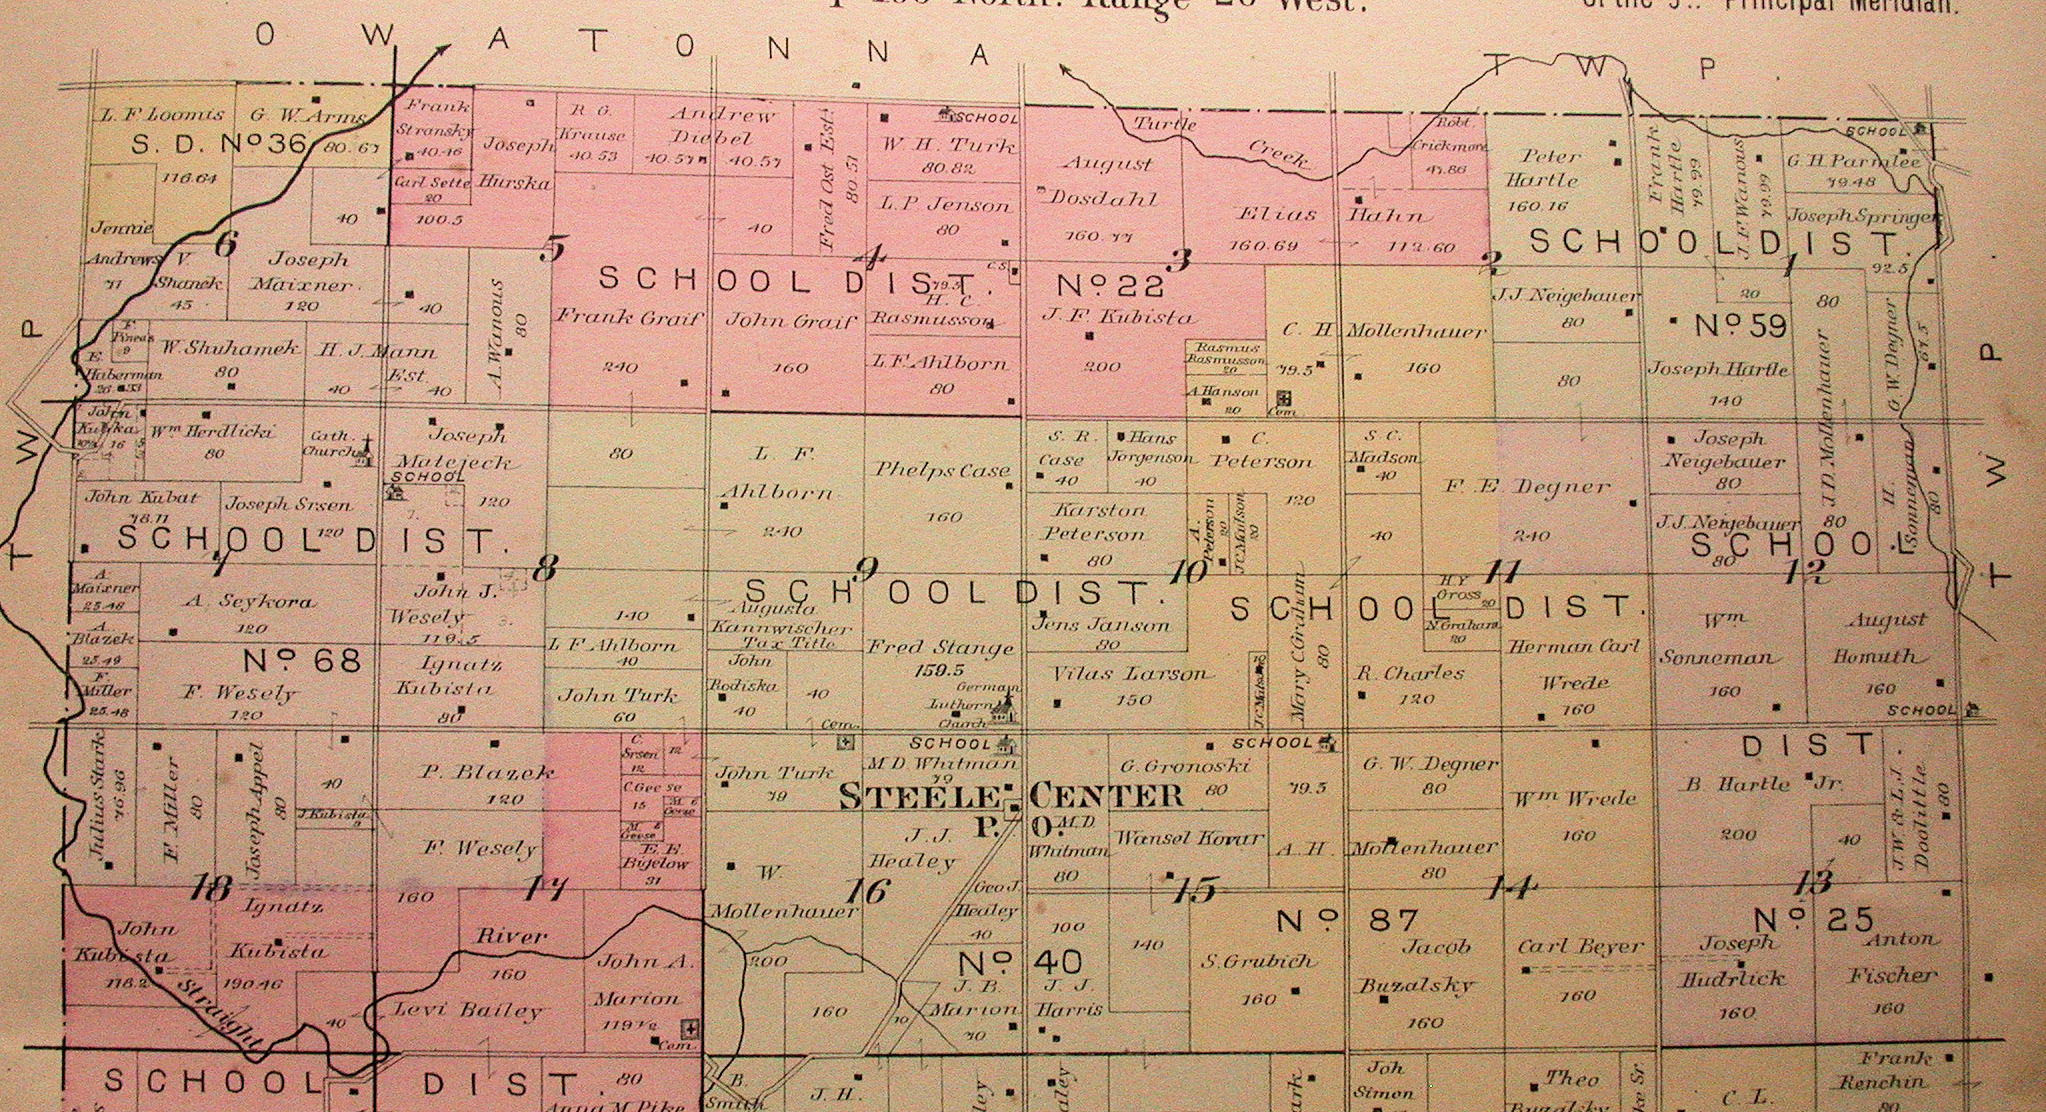 North. Range 26 West.
Principal Meridian.
OWATONNA TWP
L. F. Loomis
116.64
G. W. Arms
80.67
S. D. No 36
Frank
Stransky
40.46
Carl Sette
20
100.5
Joseph
Hurska
R. G.
Krause
40.53
Andrew
Diebel
40.57
40.57
Fred Ost Est.
80.51
SCHOOL
W. H. Turk
80.82
L. P. Jenson
80
Turtle
Creek
August
Dosdahl
160.77
Elias Hahn
160.69
112.60
Robt.
Crickmore
47.86
Peter
Hartle
160.16
Frank
Hartle
79.99
J. F. Wanous
79.99
SCHOOL
G. H. Parmlee
79.48
Joseph Springer
92.5
SCHOOL DIST.
No 59
Jennie
Andrews
77
V.
Shanek
45
6
40
Joseph
Maixner
120
40
A. Wanous
80
5
SCHOOL DIST. No 22
Frank Graif
240
40
John Graif
160
4
C. S.
79.5
H. C.
Rasmusson
L. F. Ahlborn
80
3
J. F. Kubista
200
Rasmus
Rasmusson
20
A. Hanson
20
C. H. Mollenhauer
79.5
160
Cem.
2
J. J. Neigebauer
80
80
1
20
80
Joseph Hartle
140
J. D. Mollenhauer
80
G. W. Degner
67.5
TWP
E.
Haberman
W. Shuhamek
80
H. J. Mann
Est.
40
40
John
Kubika
16
Wm Herdlicki
80
Cath.
Church
Joseph
Matejeck
SCHOOL
120
80
L. F.
Ahlborn
240
Phelps Case
160
S. R.
Case
40
Hans
Jorgenson
40
C.
Peterson
120
S. C.
Madson
40
F. E. Degner
240
40
Joseph
Neigebauer
80
J. J. Neigebauer
80
H.
Sonneman
80
John Kubat
78.71
Joseph Srsen
120
SCHOOL DIST.
No 68
7
8
9
10
11
12
Karston
Peterson
80
A.
Peterson
20
J. C. Madson
20
TWP
TWP
A.
Maixner
25.48
A. Seykora
120
John J.
Wesely
119.5
140
SCHOOL DIST.
Augusta
Kannwischer
Tax Title
Fred Stange
159.5
Jens Janson
80
SCHOOL DIST.
Mary Graham
80
H. Y.
Gross
20
N. Graham
20
Herman Carl
Wrede
160
SCHOOL
Wm
Sonneman
160
August
Homuth
160
SCHOOL
A.
Blazek
25.49
F.
Miller
25.48
F. Wesely
120
Ignatz
Kubista
80
L. F. Ahlborn
40
John Turk
60
John
Rodiska
40
40
Cem.
German
Luthern
Church
Vilas Larson
150
R. Charles
120
Julius Stark
76.96
F. Miller
80
Joseph Appel
80
40
J. Kubista
P. Blazek
120
F. Wesely
160
C.
Srsen
12
12
C. Geese
15
M. E.
Geese
M. E.
Geese
E. E.
Bigelow
31
John Turk
79
SCHOOL
M. D. Whitman
79
STEELE CENTER
P. O.
J. J.
Healey
M. D.
Whitman
80
G. Gronoski
80
SCHOOL
79.5
Wansel Kovar
A. H. Mollenhauer
80
G. W. Degner
80
Wm Wrede
160
DIST.
B. Hartle Jr.
200
40
J. W. & L. J.
Doolittle
80
18
17
16
15
14
13
John
Kubista
118.2
Ignatz
Kubista
190.46
40
Straight
River
160
Levi Bailey
John A.
Marion
119 1/2
Cem.
W.
Mollenhauer
200
160
Geo J.
Healey
40
No 40
J. B.
Marion
70
10
100
J. J.
Harris
140
No 87
S. Grubich
160
Jacob
Buzalsky
160
Carl Beyer
160
No 25
Joseph
Hudrlick
160
Anton
Fischer
160
SCHOOL DIST.
80
Anna M. Pike
B.
Smith
J. H.
Joh
Simon
Theo
Buzalsky
C. L.
Frank
Renchin
80